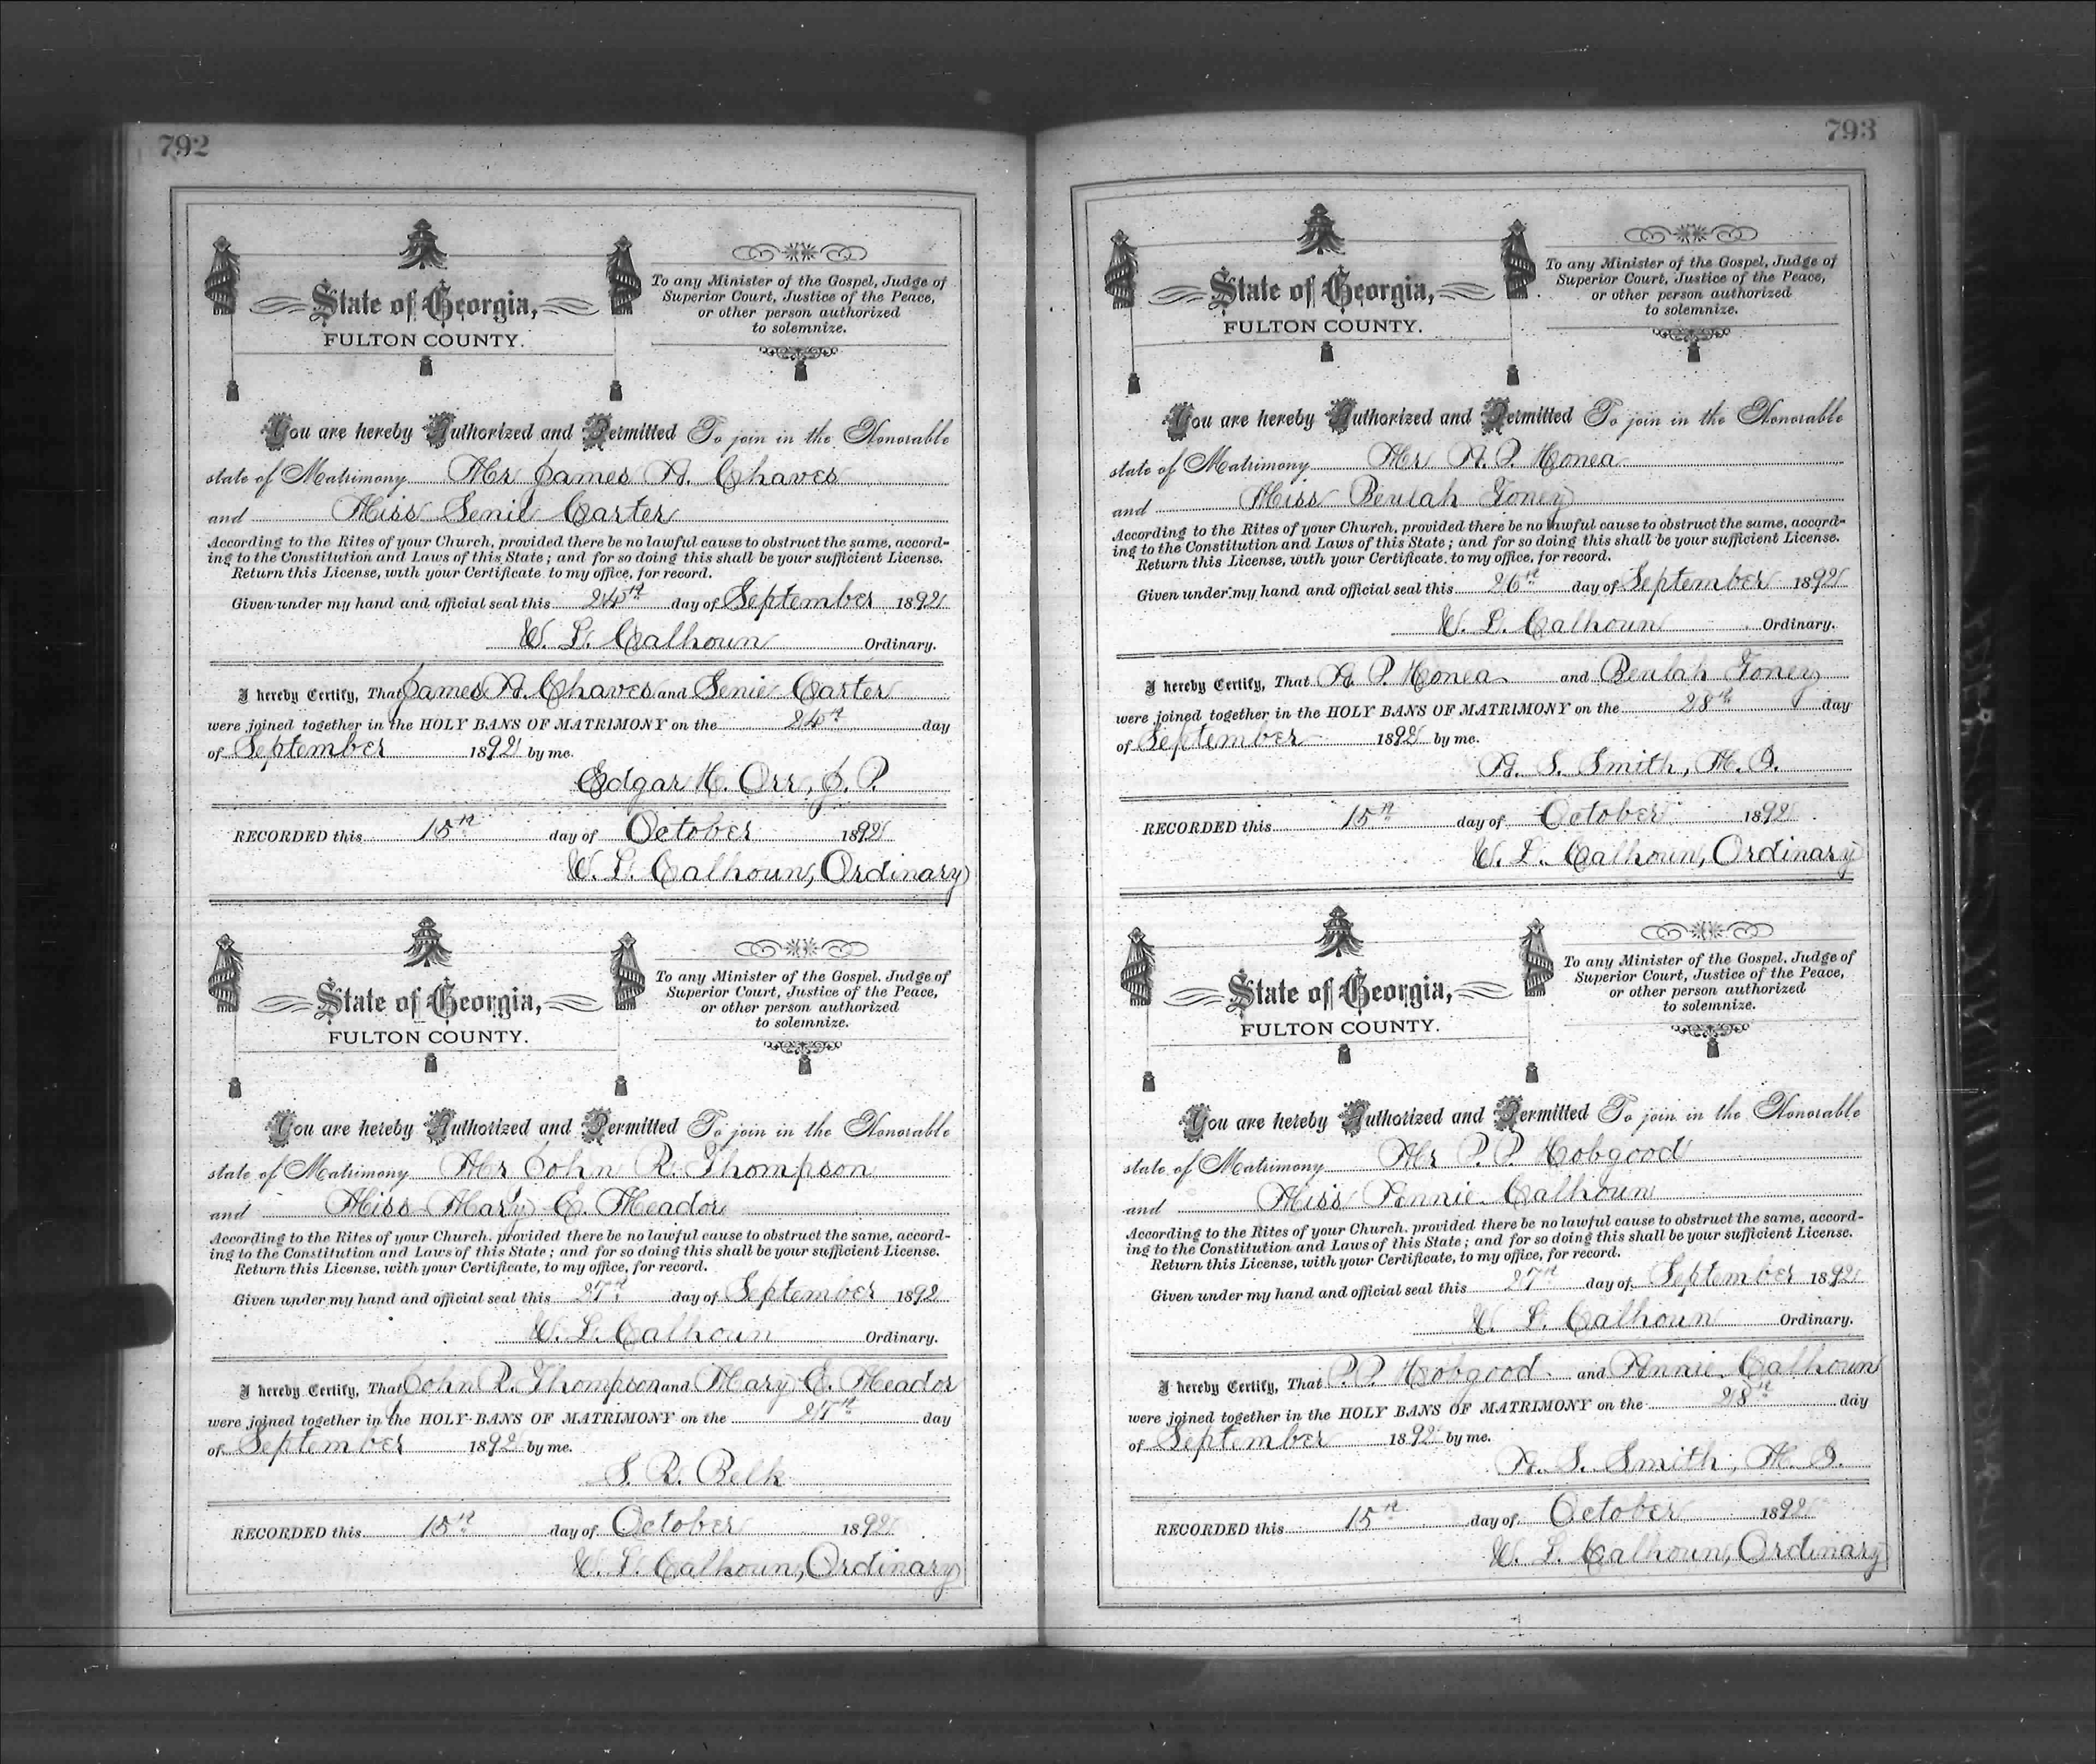 792
State of Georgia,
FULTON COUNTY.
To any Minister of the Gospel, Judge of
Superior Court, Justice of the Peace,
or other person authorized
to solemnize.
You are hereby Authorized and Permitted To join in the Honorable
state of Matrimony Mr James A. Chaves
and Miss Senie Carter
According to the Rites of your Church, provided there be no lawful cause to obstruct the same, accord-
ing to the Constitution and Laws of this State; and for so doing this shall be your sufficient License.
Return this License, with your Certificate to my office, for record.
Given under my hand and official seal this 24th day of September 1892
W. L. Calhoun Ordinary.
I hereby Certify, That James A. Chaves and Senie Carter
were joined together in the HOLY BANS OF MATRIMONY on the 24th day
of September 1892 by me.
Edgar H. Orr, J. P.
RECORDED this 15th day of October 1892
W. L. Calhoun, Ordinary
State of Georgia,
FULTON COUNTY.
To any Minister of the Gospel, Judge of
Superior Court, Justice of the Peace,
or other person authorized
to solemnize.
You are hereby Authorized and Permitted To join in the Honorable
state of Matrimony Mr John R. Thompson
and Miss Mary E. Meador
According to the Rites of your Church, provided there be no lawful cause to obstruct the same, accord-
ing to the Constitution and Laws of this State; and for so doing this shall be your sufficient License.
Return this License, with your Certificate, to my office, for record.
Given under my hand and official seal this 27th day of September 1892
W. L. Calhoun Ordinary.
I hereby Certify, That John R. Thompson and Mary E. Meador
were joined together in the HOLY BANS OF MATRIMONY on the 27th day
of September 1892 by me.
S. R. Belk
RECORDED this 15th day of October 1892
W. L. Calhoun, Ordinary
793
State of Georgia,
FULTON COUNTY.
To any Minister of the Gospel, Judge of
Superior Court, Justice of the Peace,
or other person authorized
to solemnize.
You are hereby Authorized and Permitted To join in the Honorable
state of Matrimony Mr A. P. Honea
and Miss Beulah Toney
According to the Rites of your Church, provided there be no lawful cause to obstruct the same, accord-
ing to the Constitution and Laws of this State; and for so doing this shall be your sufficient License.
Return this License, with your Certificate, to my office, for record.
Given under my hand and official seal this 26th day of September 1892
W. L. Calhoun Ordinary.
I hereby Certify, That A. P. Honea and Beulah Toney
were joined together in the HOLY BANS OF MATRIMONY on the 28th day
of September 1892 by me.
A. S. Smith, M. G.
RECORDED this 15th day of October 1892
W. L. Calhoun, Ordinary
State of Georgia,
FULTON COUNTY.
To any Minister of the Gospel, Judge of
Superior Court, Justice of the Peace,
or other person authorized
to solemnize.
You are hereby Authorized and Permitted To join in the Honorable
state of Matrimony Mr P. P. Hobgood
and Miss Annie Calhoun
According to the Rites of your Church, provided there be no lawful cause to obstruct the same, accord-
ing to the Constitution and Laws of this State; and for so doing this shall be your sufficient License.
Return this License, with your Certificate, to my office, for record.
Given under my hand and official seal this 27th day of September 1892
W. L. Calhoun Ordinary.
I hereby Certify, That P. P. Hobgood and Annie Calhoun
were joined together in the HOLY BANS OF MATRIMONY on the 28th day
of September 1892 by me.
A. S. Smith, M. G.
RECORDED this 15th day of October 1892
W. L. Calhoun, Ordinary